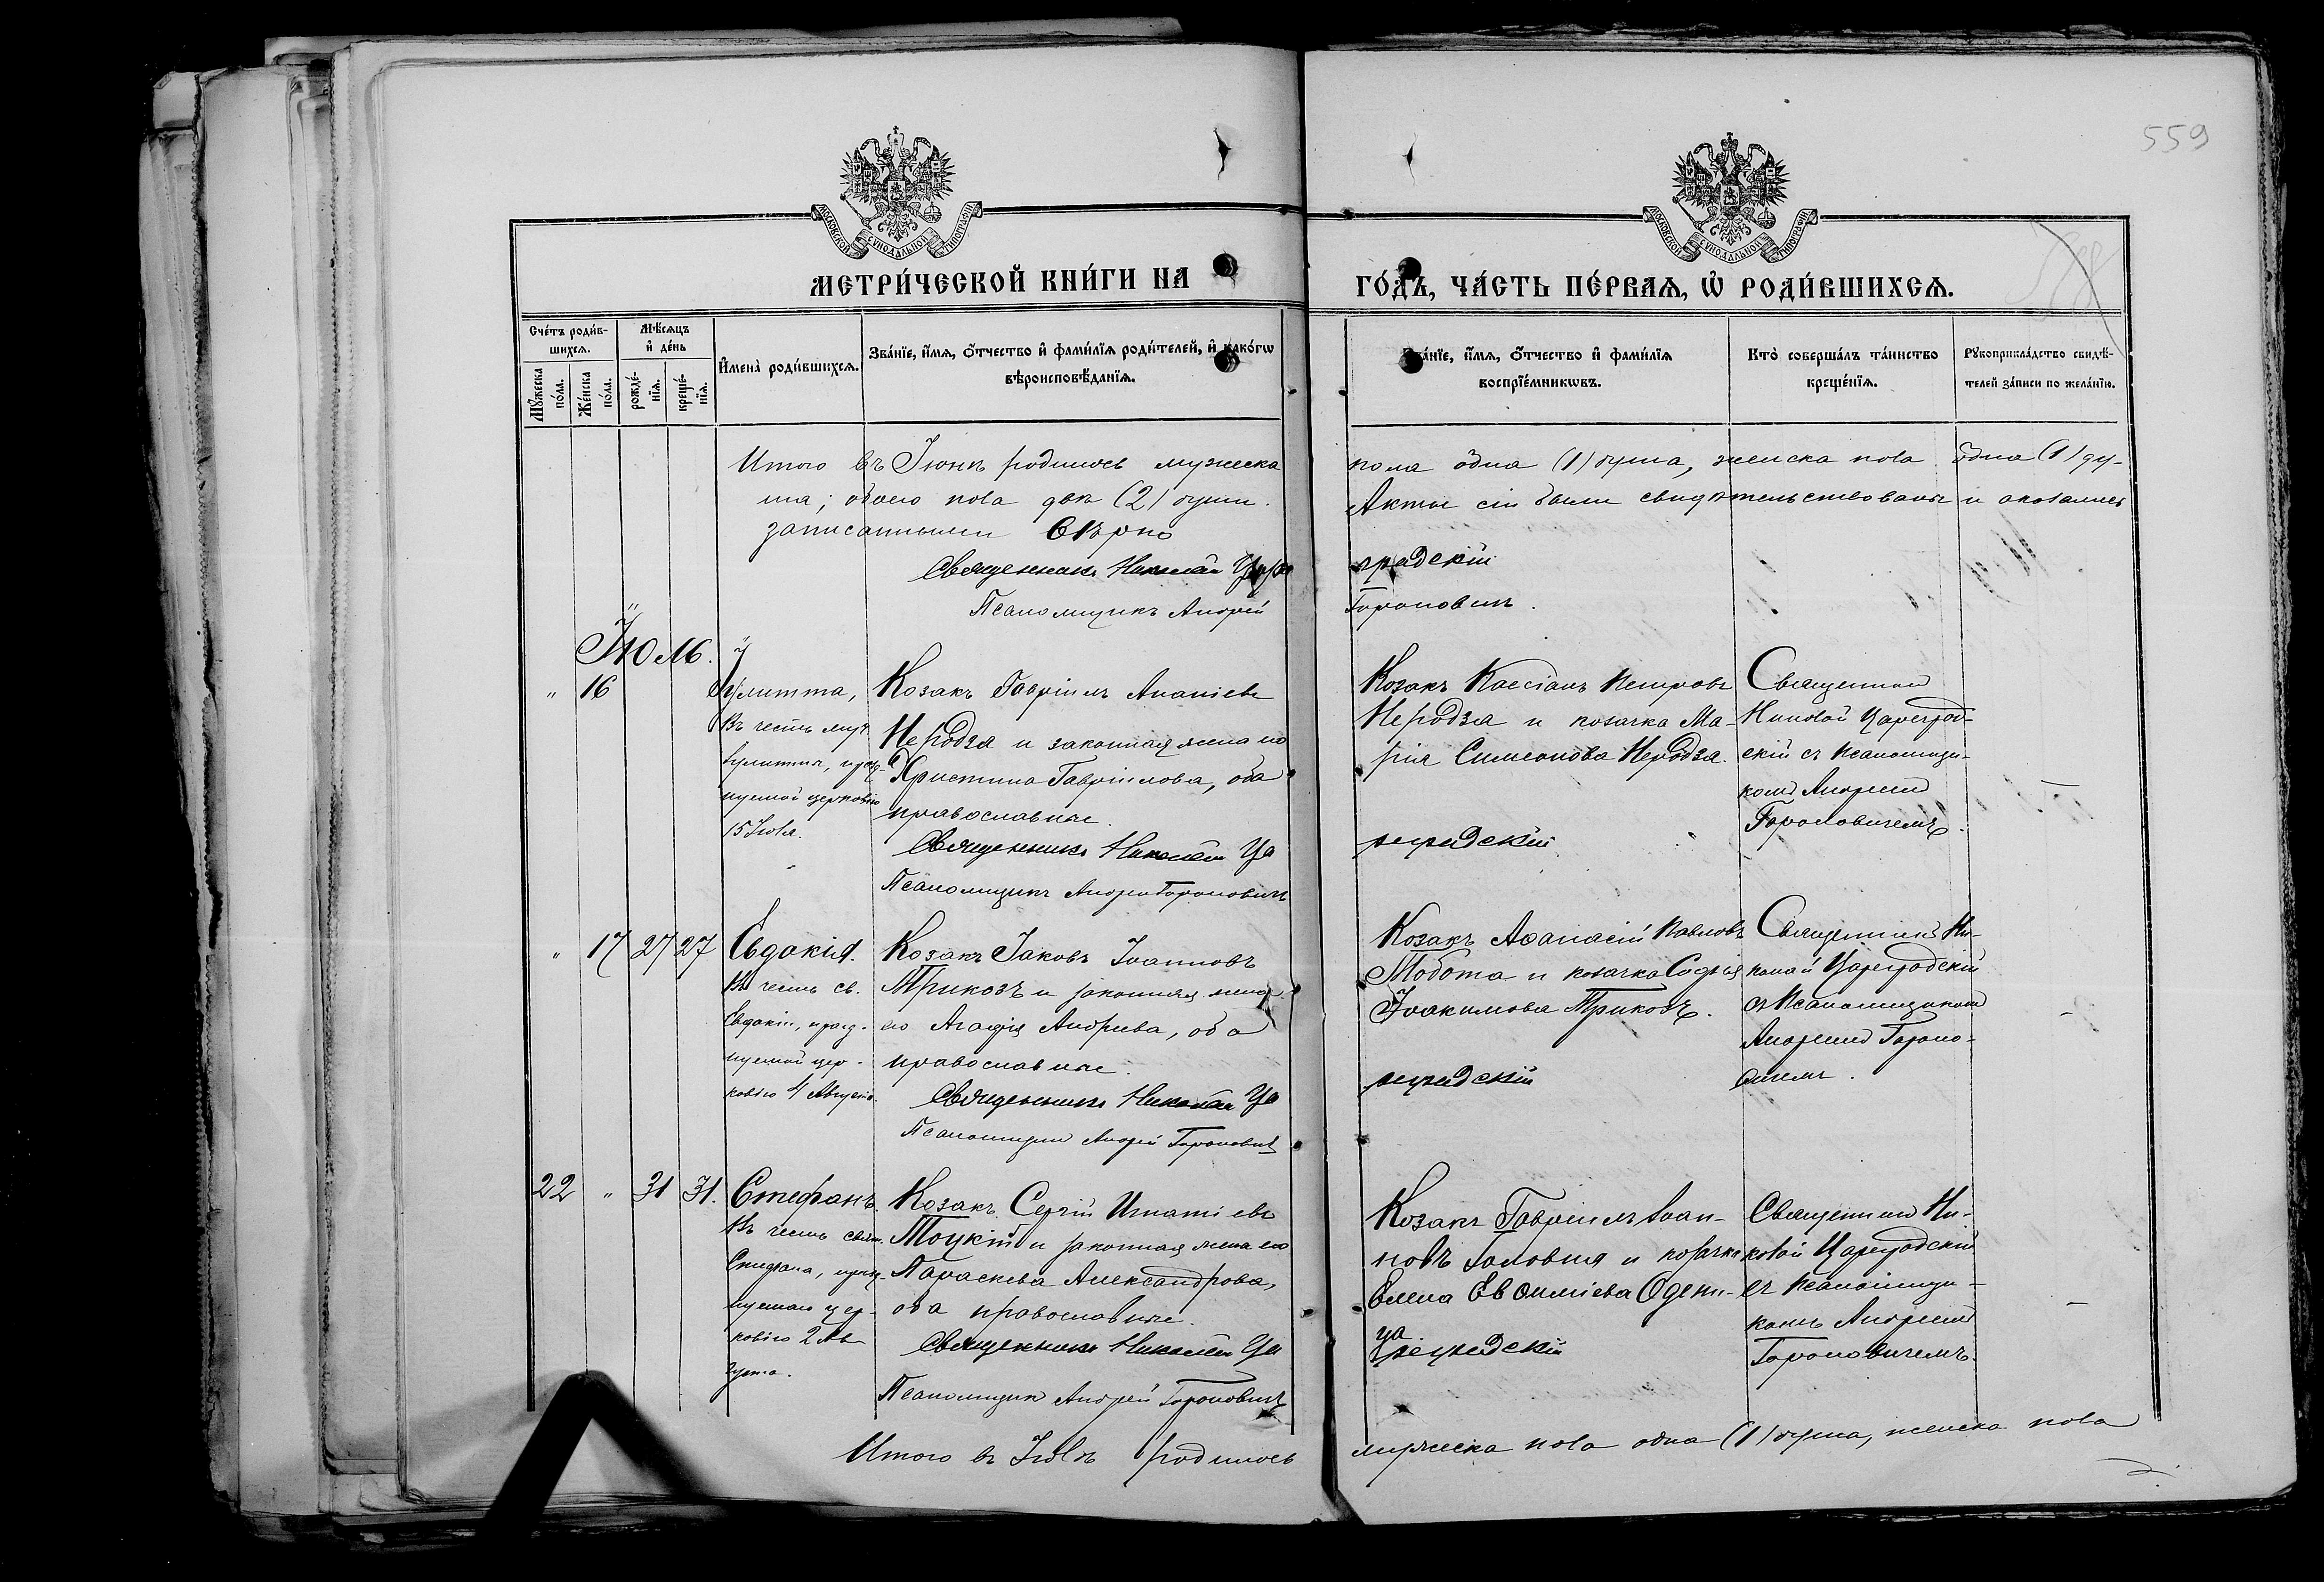 559
МОСКОВСКОЙ СѴНОДАЛЬНОЙ ТИПОГРАФІИ
МОСКОВСКОЙ СѴНОДАЛЬНОЙ ТИПОГРАФІИ
МЕТРИ́ЧЕСКОЙ КНИ́ГИ НА
ГО́ДЪ, ЧА́СТЬ ПЕ́РВАѦ, Ѡ҆ РОДИ́ВШИХСѦ.
Сче́тъ роди́в-
шихсѧ.
Мѣ́сѧцъ
и҆ де́нь
Мꙋ́жеска
по́ла.
Же́нска
по́ла.
рожде́-
нїѧ.
креще́-
нїѧ.
И҆мена̀ роди́вшихсѧ.
Зва́нїе, и҆́мѧ, ѻ҆́тчество и҆ фами́лїѧ роди́телей, и҆ како́гѡ
вѣроисповѣ́данїѧ.
Зва́нїе, и҆́мѧ, ѻ҆́тчество и҆ фами́лїѧ
воспрїе́мникѡвъ.
Кто̀ соверша́лъ та́инство
креще́нїѧ.
Рꙋкоприкла́дство свидѣ́-
телей за́писи по жела́нїю.
Итого въ Іюнѣ родилось мужеска
пола одна (1) душа, женска пола одна (1) ду-
ша; обоего пола двѣ (2) души.
Акты сіи были свидѣтельствованы и оказались
записанными вѣрно
Священникъ Николай Царе
градскій
Псаломщикъ Андрей
Гороновичъ.
Іюль.
" 16
Іулитта,
Въ честь муч.
Іулитты, празд-
нуемой церковію
15 Іюля.
Козакъ Гавріилъ Ананіевъ
Неродза и законная жена его
Христина Гавріилова, оба
православные.
Священникъ Николай Ца
Псаломщикъ Андрей Гороновичъ
Козакъ Кассіанъ Петровъ
Неродза и козачка Ма-
рія Симеонова Неродза.
регradскій
Священник
Николай Цареград-
скій съ псаломщи-
комъ Андреем
Гороновичемъ.
" 17 27 27
Евдокія.
Въ честь св.
Евдокіи, празд-
нуемой цер-
ковію 4 Августа.
Козакъ Іаковъ Іоанновъ
Трикозъ и законная жена
его Агафія Андреева, оба
православные.
Священникъ Николай Ца
Псаломщикъ Андрей Гороновичъ
Козакъ Аѳанасій Павловъ
Мобота и козачка Софія
Іоакимова Трикозъ.
реградскій
Священникъ Ни-
колай Цареградскій
съ псаломщиком
Андреем Гороно-
вичемъ.
22 " 31 31.
Стефанъ.
Въ честь свящ.
Стефана, празд-
нуемаго цер-
ковію 2 Ав-
густа.
Козакъ Сергій Игнатіевъ
Тоцкій и законная жена его
Параскева Александрова,
оба православные.
Священникъ Николай Ца
Псаломщик Андрей Гороновичъ
Козакъ Гавріилъ Іоан-
новъ Головня и козачка
Елена Евѳиміева Одени-
ца.
реградскій
Священник Ни-
колай Цареградскій
съ псаломщи-
комъ Андреем
Гороновичемъ.
Итого въ Іюлѣ родилось
мужеска пола одна (1) душа, женска пола